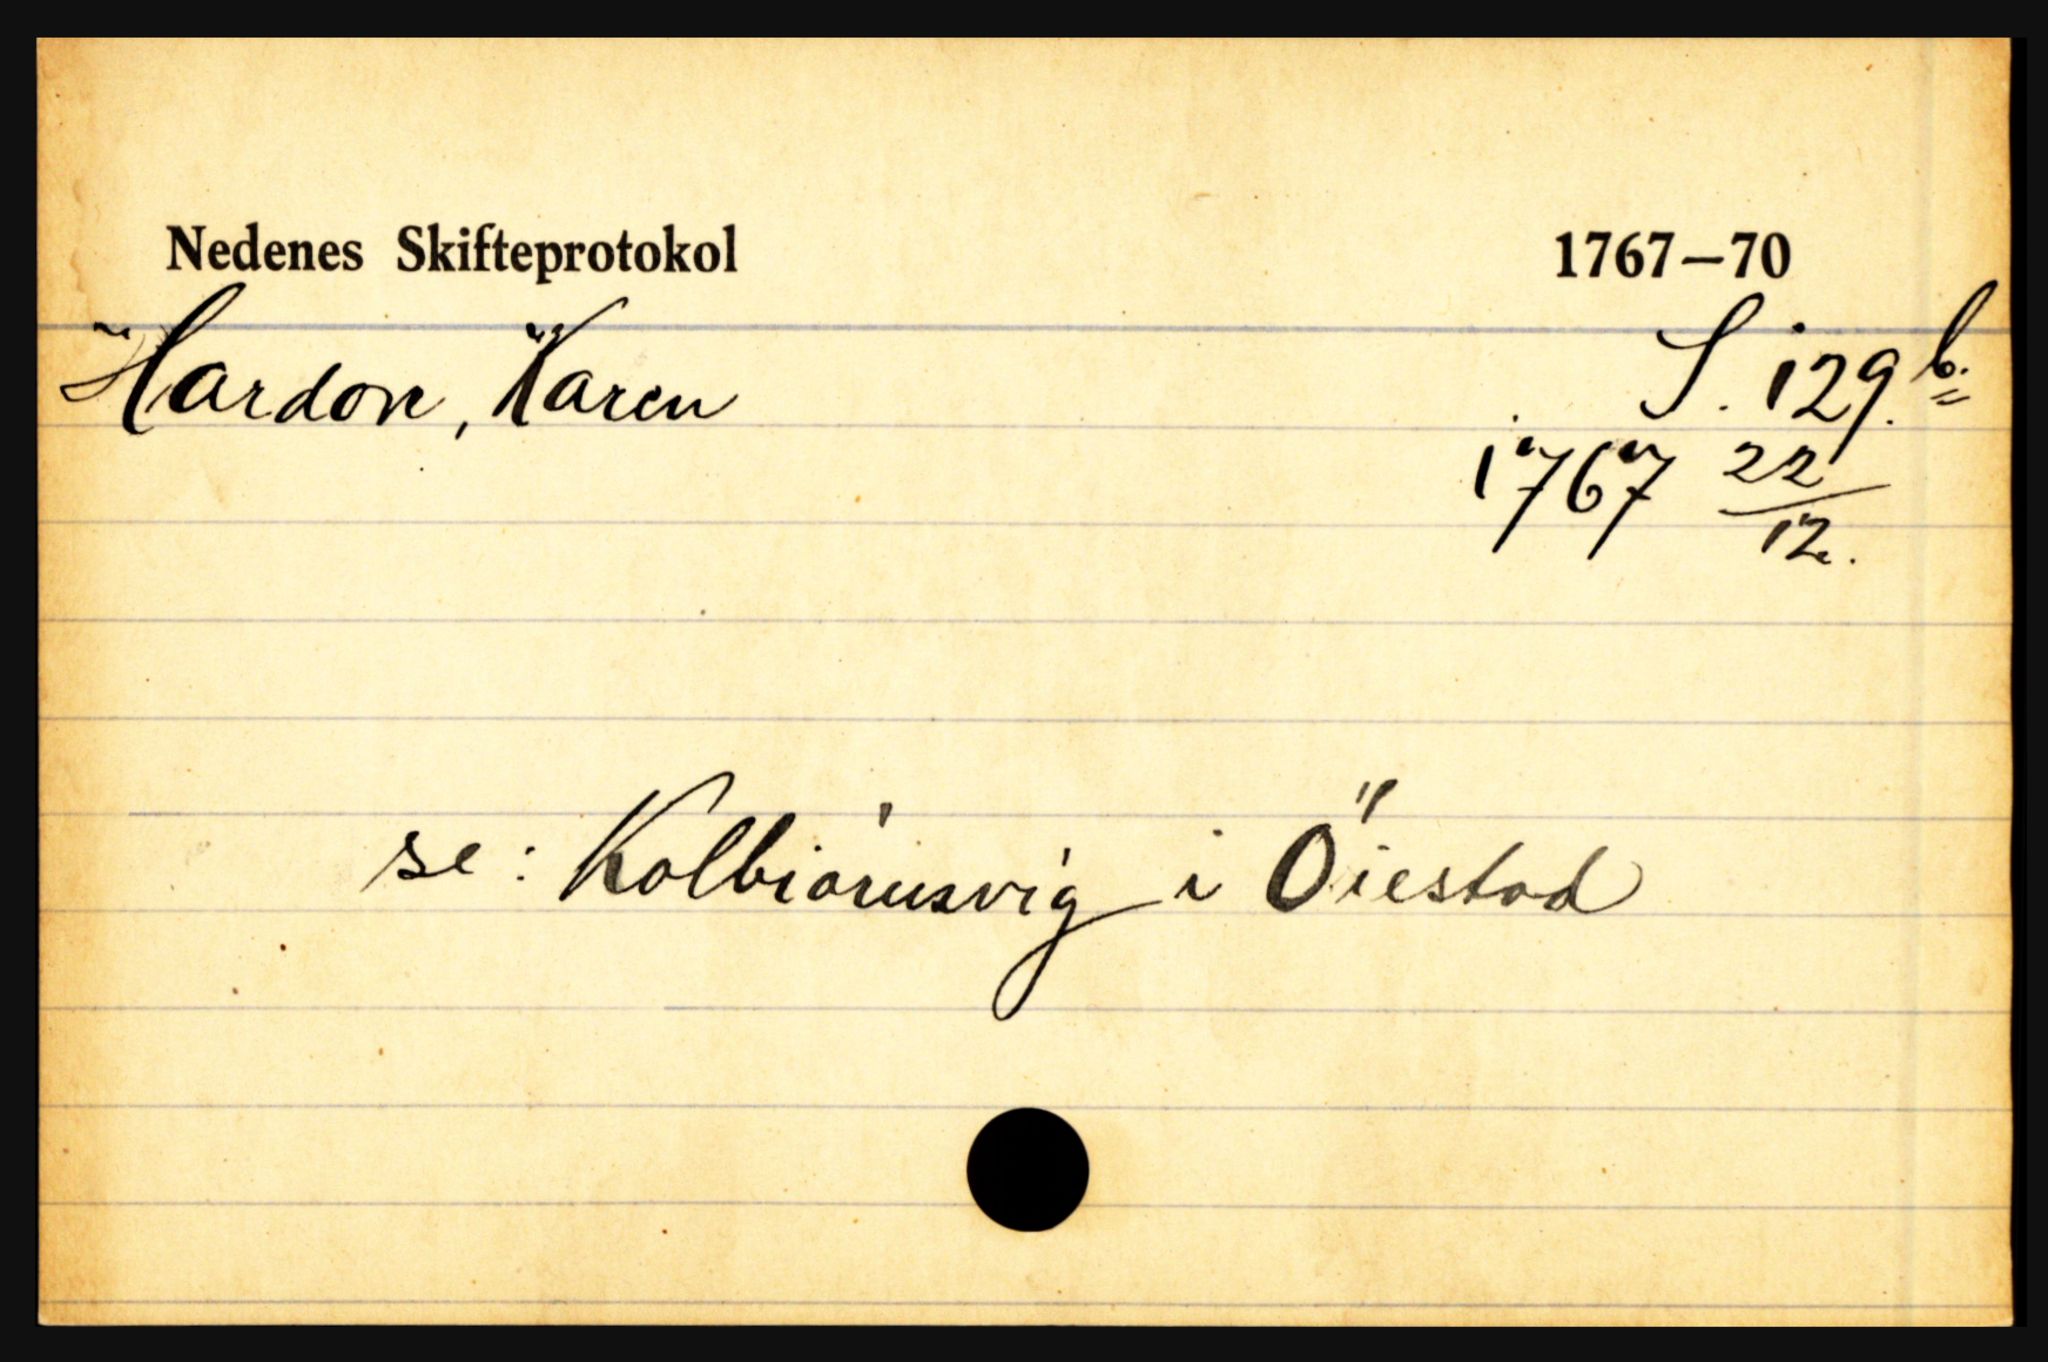 Nedenes Skifteprotokol 1767–70
Hardon, Karen S. 129.b.
1767 22/12.
se: Kolbiørnsvig i Öiestad